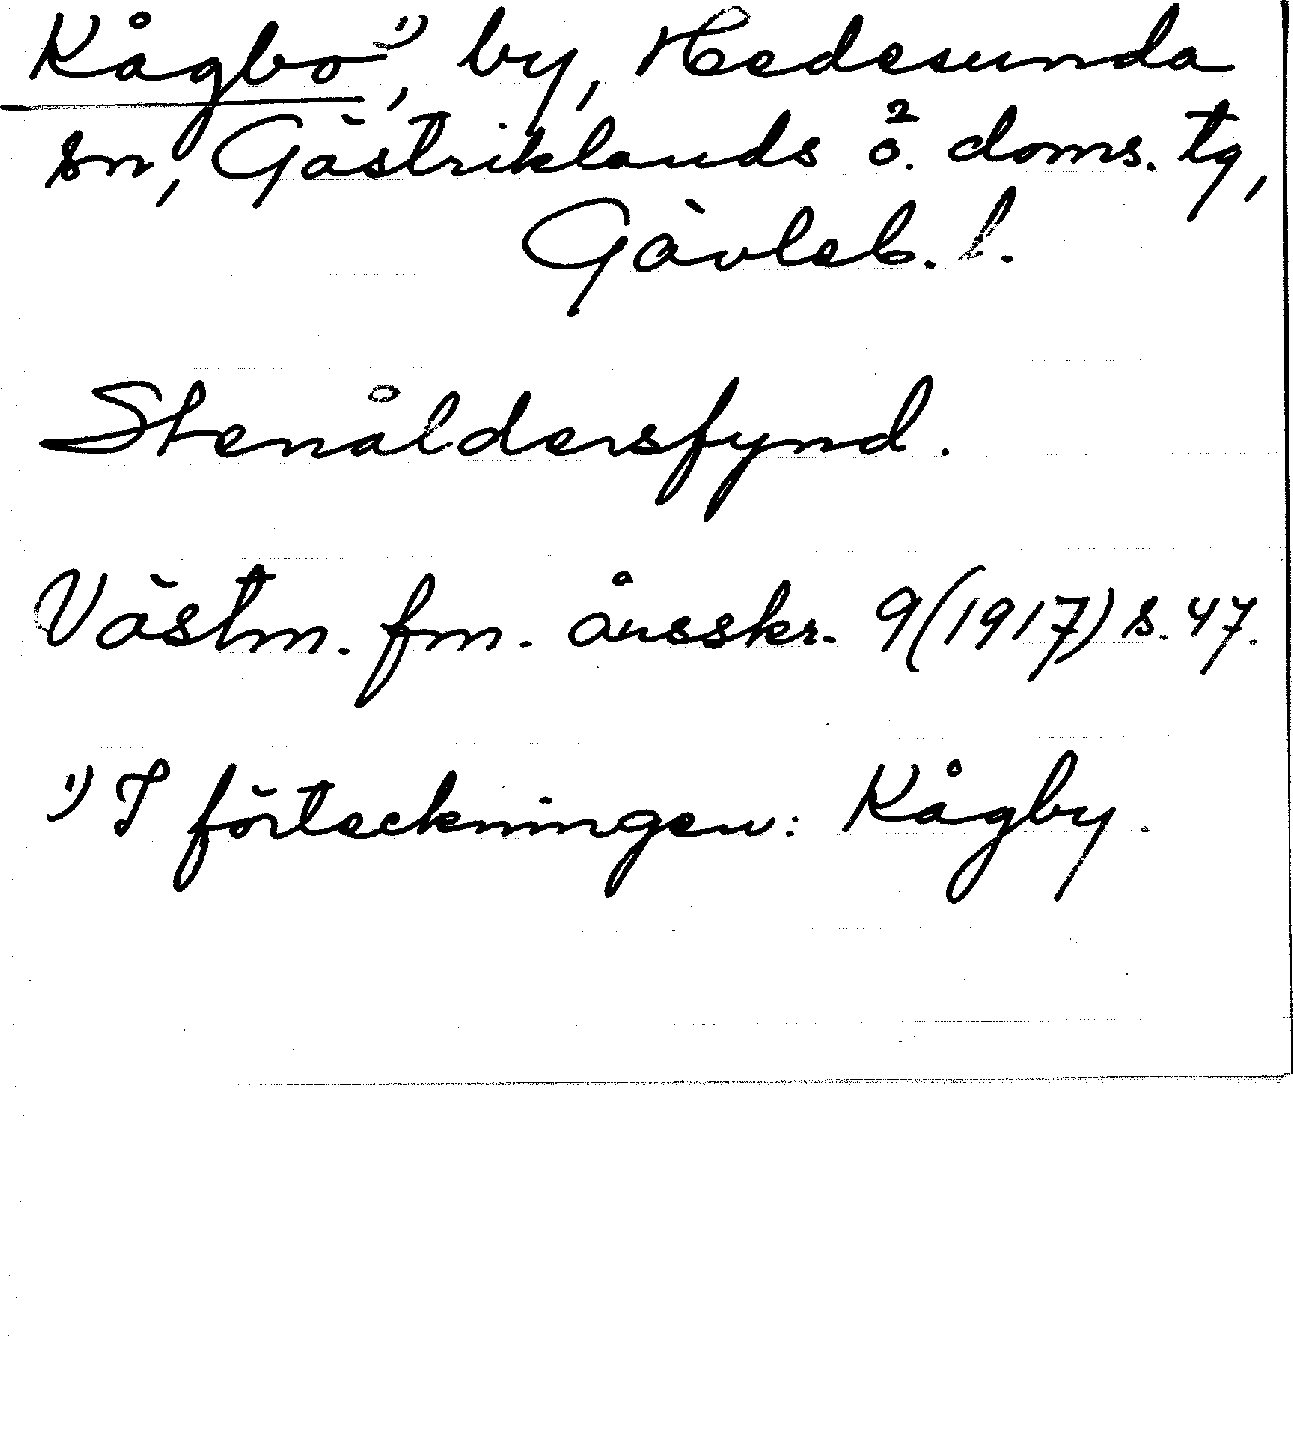 Kågbo¹⁾, by, Hedesunda
sn, Gästriklands ö. doms. tg,
Gävleb. l.
Stenåldersfynd.
Västm. fm. årsskr. 9(1917) s. 47.
¹⁾ I förteckningen: Kågby.